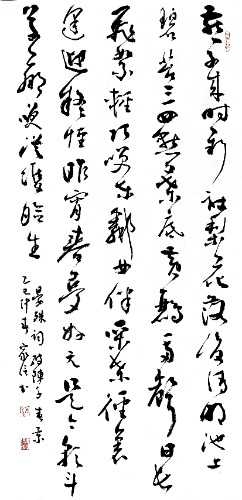 燕子来时新社梨花落后清明池上
碧苔三四点葉底黄鹂一两聲日长
飛絮轻巧笑东鄰女伴采桑径里
逢迎疑怪昨宵春梦好元是今朝斗
草赢笑従双脸生
晏殊词破陣子春景
乙巳